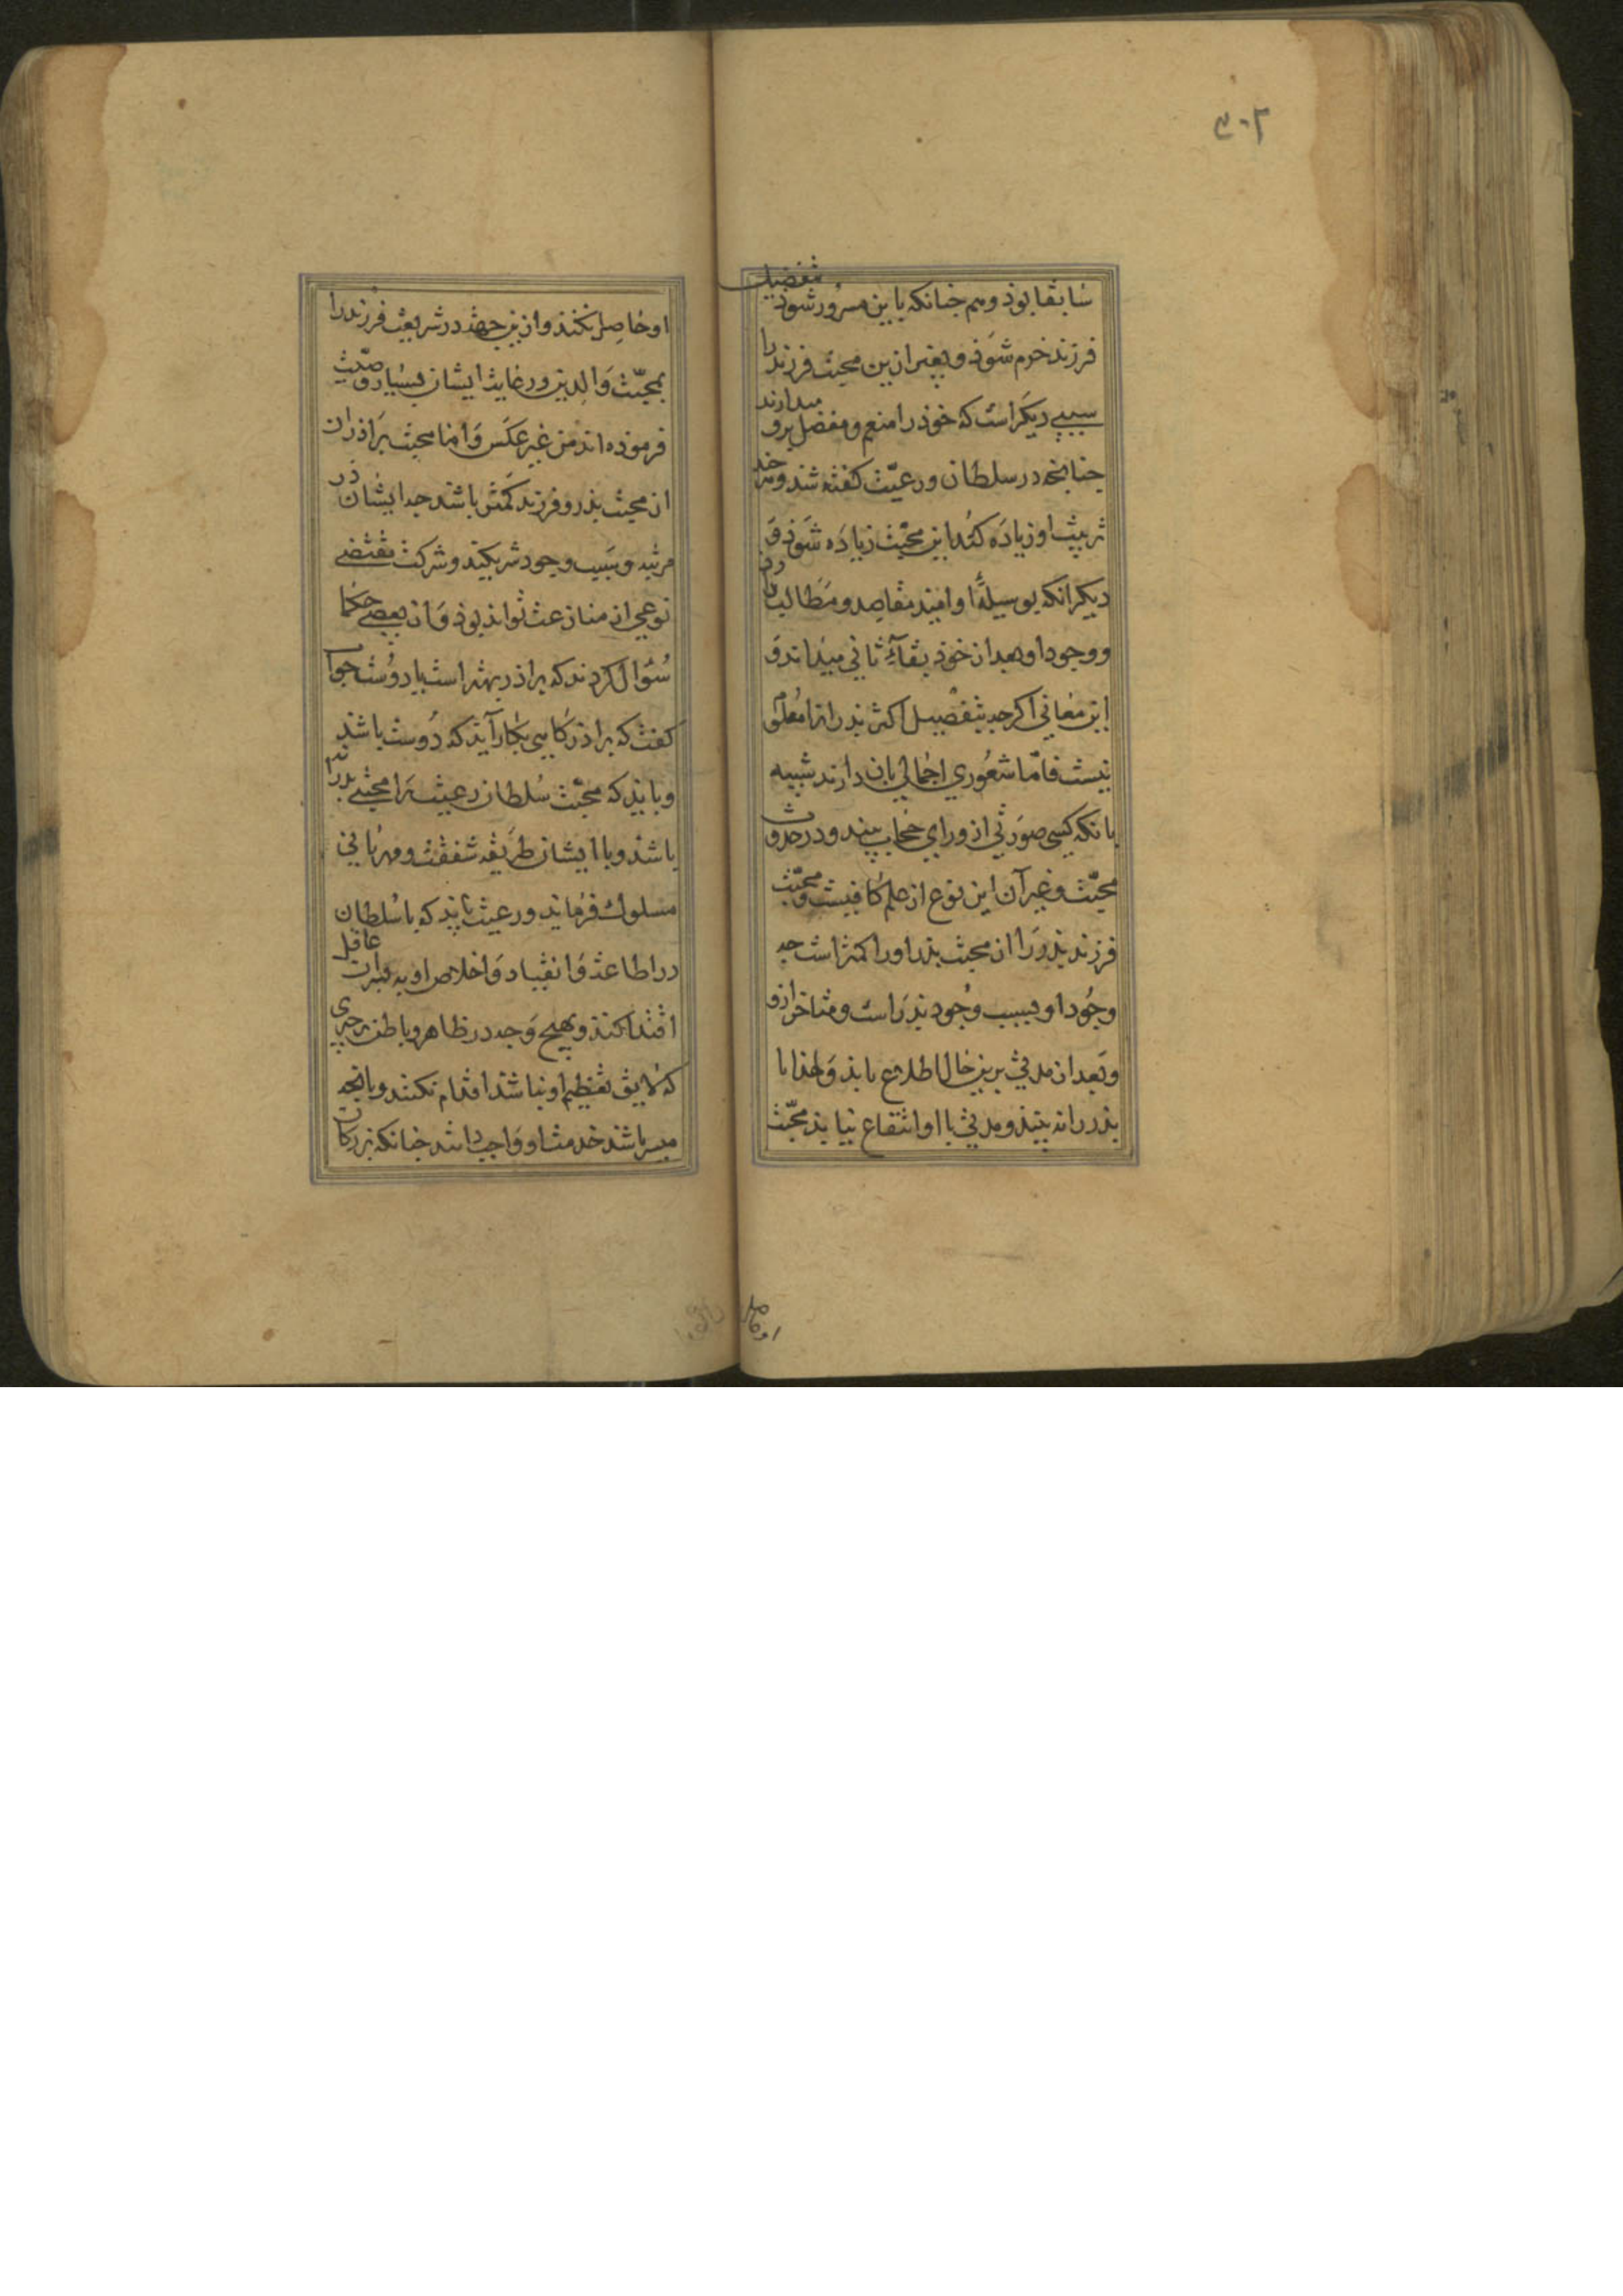 ۳۰۲
سابقا بوذ و هم جنانکه باین مسرور شوذ بتفضیل
فرزند خرم شوذ و بغیر ازین محبت فرزند را
سببی دیکر است که خوذ را منعم و مفضل برو میدارند
جنانچه در سلطان و رعیّت کفته شد و هر جند
تربیت او زیاده کند این محبّت زیاده شوذ و
دیکر انکه بوسیلهٔ او امید مقاصد و مطالب دارد
و وجود او بعد از خوذ بقآء ثانی میداند و
این معانی اکرجه بتفصیل اکثر بدرانرا معلوم
نیست فامّا شعوری اجمالی بان دارند شبیه
بانکه کسی صورتی از ورای حجاب بیند و در حدوث
محبّت و غیر آن این نوع از علم کافیست و محبّت
فرزند بذر را از محبت بذر او را کمتر است جه
وجود او بسبب وجود بذر است و متاخر ازو
و بعد از مدتی برین حال اطلاع یابذ و لهذا تا
بذر را نه بیند و مدتی با او انتفاع نیابذ محبّت
او حاصل
او حاصل نکند و ازین جهت در شریعت فرزند را
بمحبّت والدین و رعایت ایشان بسیار وصیّت
فرموده اند من غیر عکس و اما محبت براذران
از محبت بذر و فرزند کمتر باشد جه ایشان در
مرتبه و سبب وجود شریکند و شرکت مقتضی
نوعی از منازعت تواند بوذ و از بعضی حکما
سُئوال کردند که براذر بهتر است یا دوست جواب
کفت که براذر کاهی بکار آید که دوست باشد
و بایذ که محبّت سُلطان رعیت را محبتی بدرانه
باشد و با ایشان طریقه شفقت و مهربانی
مسلوک فرماید و رعیت باید که با سُلطان
در اطاعت و انقیاد و اخلاص او به پسران عاقل
اقتدا کنند و بهیچ وجه در ظاهر و باطن بر جیزی
که لایق تعظیم او نباشد اقدام نکنند و بانچه
میسر باشد خدمت او واجب دانند جنانکه بزرکان